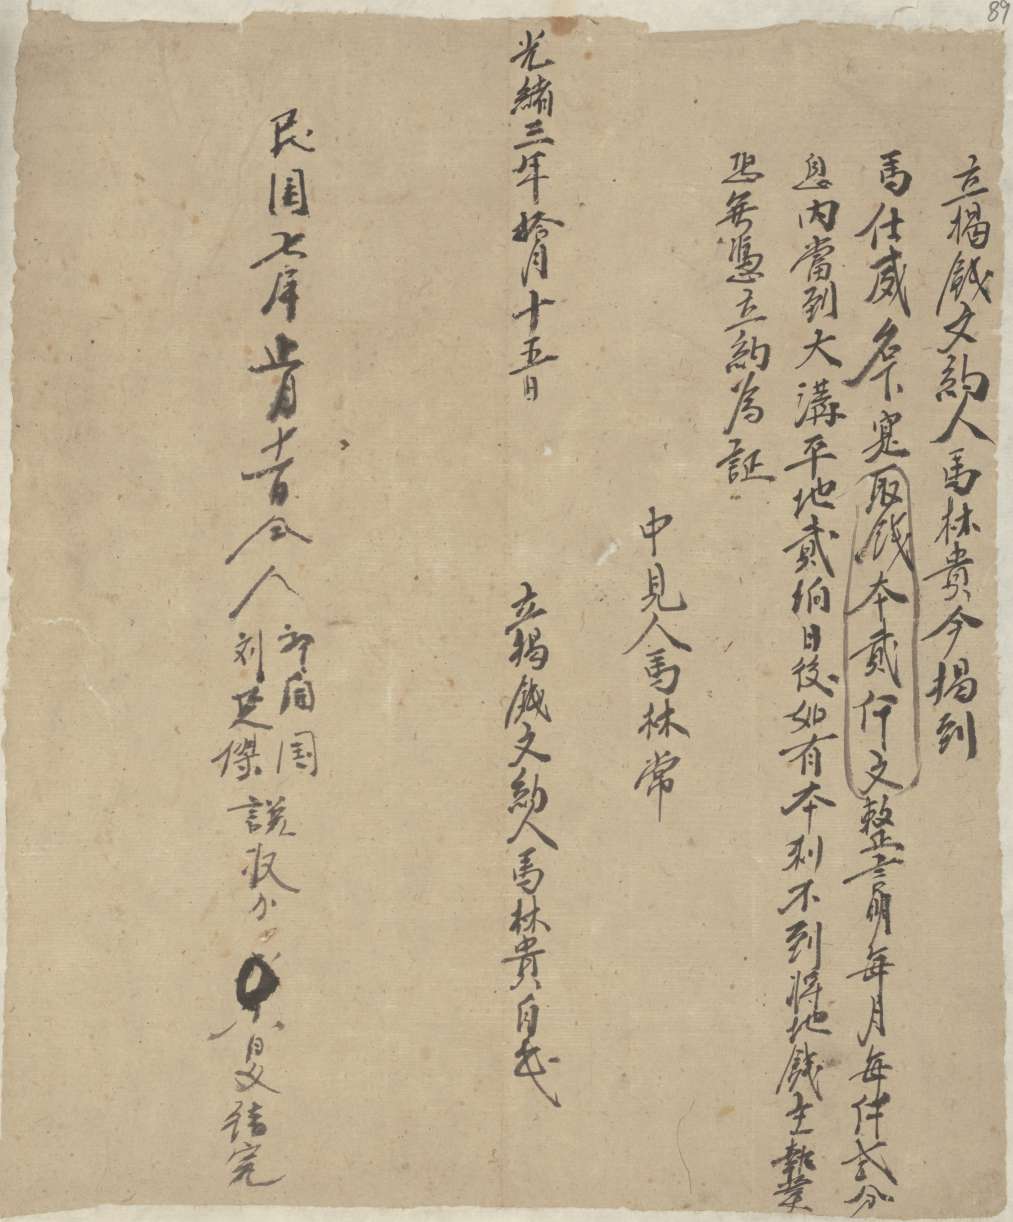 89
立揭錢文約人馬林貴今揭到
馬仕威名下寔取錢本貳仟文整言明每月每仟弍分
息内當到大溝平地貳垧日後如有本利不到將地錢主執業
恐無憑立約為証
中見人馬林常
光緒三年拾月十五日 立揭錢文約人馬林貴自
民国七年正月十 日仝人
自国
刘廷傑
説收
结完